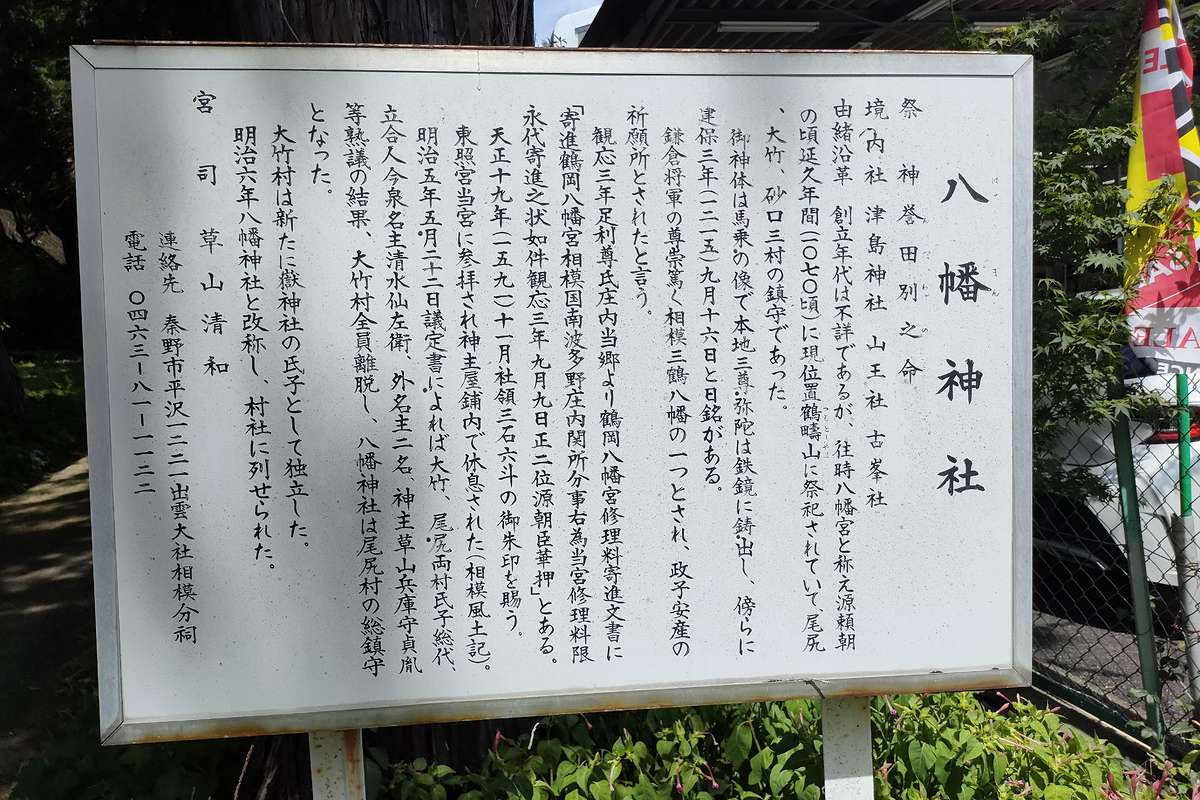 八幡神社
祭神 誉田別之命
境内社 津島神社 山王社 古峯社
由緒沿革 創立年代は不詳であるが、往時八幡宮と称え源頼朝
の頃延久年間(一〇七〇頃)に現位置鶴疇山に祭祀されていて、尾尻
、大竹、砂口三村の鎮守であった。
御神体は馬乗の像で本地三尊弥陀は鉄鏡に鋳出し、傍らに
建保三年(一二一五)九月十六日と日銘がある。
鎌倉将軍の尊崇篤く相模三鶴八幡の一つとされ、政子安産の
祈願所とされたと言う。
観応三年足利尊氏庄内当郷より鶴岡八幡宮修理料寄進文書に
「寄進鶴岡八幡宮相模国南波多野庄内関所分事右為当宮修理料限
永代寄進之状如件観応三年九月九日正二位源朝臣華押」とある。
天正十九年(一五九一)十一月社領三石六斗の御朱印を賜う。
東照宮当宮に参拝され神主屋鋪内で休息された(相模風土記)。
明治五年五月二十二日議定書によれば大竹、尾尻両村氏子総代、
立合人今泉名主清水仙左衛、外名主二名、神主草山兵庫守貞胤
等熟議の結果、大竹村全員離脱し、八幡神社は尾尻村の総鎮守
となった。
大竹村は新たに嶽神社の氏子として独立した。
明治六年八幡神社と改称し、村社に列せられた。
宮司 草山清和
連絡先 秦野市平沢一二二一出雲大社相模分祠
電話 〇四六三ー八一ー一一二二
SALE